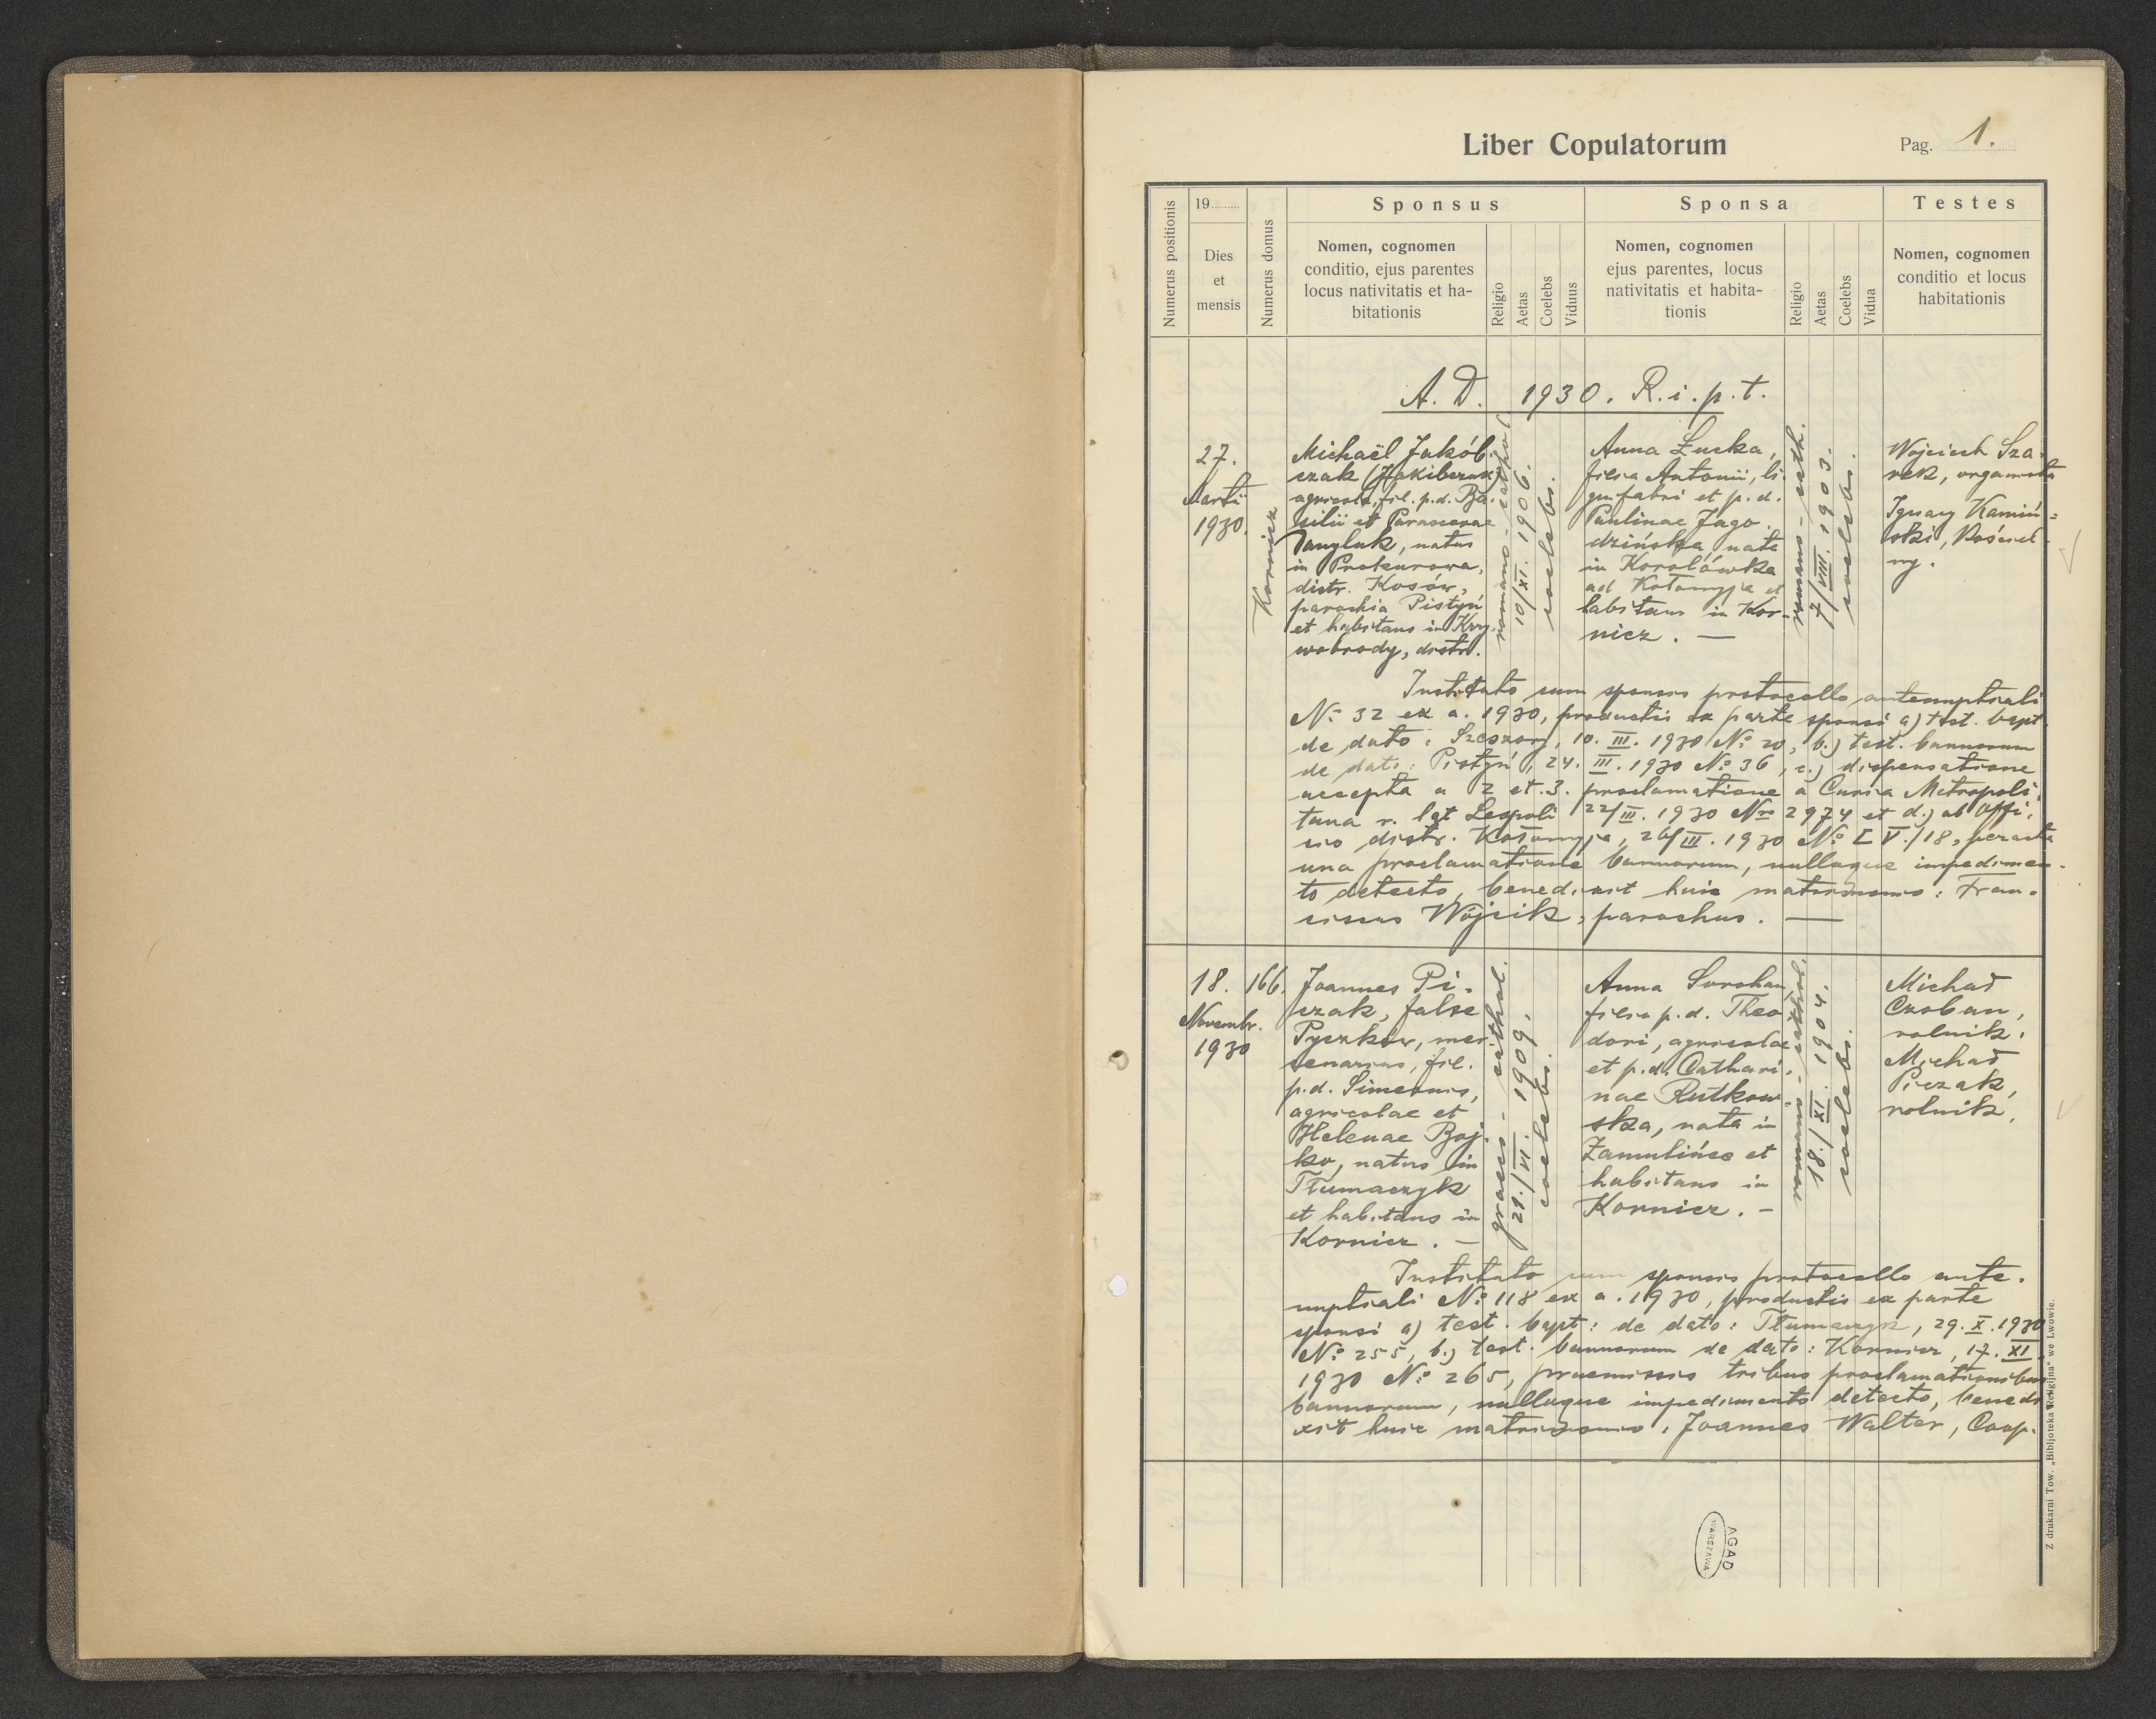 Liber Copulatorum
Pag. 1.
Numerus positionis
19
Dies
et
mensis
Numerus domus
Sponsus
Nomen, cognomen
conditio, ejus parentes
locus nativitatis et ha-
bitationis
Religio
Aetas
Coelebs
Viduus
Sponsa
Nomen, cognomen
ejus parentes, locus
nativitatis et habita-
tionis
Religio
Aetas
Coelebs
Vidua
Testes
Nomen, cognomen
conditio et locus
habitationis
A. D. 1930. R. i. p. t.
27.
Martii
1930.
Kornicz
Michaël Jakób-
czak (Jakibczuk)
agricola, fil. p. d. Ba-
silii et Parascevae
Danyluk, natus
in Prokurawa,
distr. Kosów,
parochia Pistyń
et habitans in Kry-
wobrody, distr.
romano-cathol.
10/XI. 1906.
coelebs.
Anna Łucka,
filia Antonii, li-
gnifabri et p. d.
Paulinae Jago-
dzińska nata
in Korolówka
ad Kołomyja et
habitans in Kor-
nicz. —
romano-cath.
7/VIII. 1903.
coelebs.
Wojciech Sza-
rek, organista
Ignacy Kamiń-
ski, kościel-
ny.
Instituto cum sponsis protocollo antenuptiali
No 32 ex a. 1930, productis ex parte sponsi a) test. bapt.
de dato: Szeszory, 10. III. 1930 No 20, b.) test. bannorum
de dato: Pistyń, 24. III. 1930 No 36, c.) dispensatione
accepta a 2 et 3. proclamatione a Curia Metropoli-
tana r. lat Leopoli 22/III. 1930 No 2974 et d.) ab Offi-
cio distr. Kołomyja, 26/III. 1930 No I V./18, peracta
una proclamatione bannorum, nulloque impedimen-
to detecto, benedixit huic matrimonio: Fran-
ciscus Wójcik, parochus. —
18.
Novembr.
1930
166.
Joannes Pi-
czak, false
Pyczkow, mer-
cenarius, fil.
p. d. Simeonis,
agricolae et
Helenae Boj-
ko, natus in
Tłumaczyk
et habitans in
Kornicz. —
graeco-cathol.
21./VI. 1909.
coelebs.
Anna Sorohan
filia p. d. Theo
dori, agricolae
et p. d. Cathari-
nae Rutkow-
ska, nata in
Zamulińce et
habitans in
Kornicz. —
romano-cathol.
18./XI. 1904.
coelebs.
Michał
Czoban,
rolnik.
Michał
Piczak,
rolnik.
Instituto cum sponsis protocollo ante-
nuptiali No 118 ex a. 1930, productis ex parte
sponsi a) test. bapt: de dato: Tłumaczyk, 29. X. 1930
No 255, b.) test. bannorum de dato: Kornicz, 17. XI.
1930 No 265, praemissis tribus proclamationibus
bannorum, nulloque impedimento detecto, benedi
xit huic matrimonio: Joannes Walter, Coop.
Z drukarni Tow. „Bibljoteka Religijna" we Lwowie.
AGAD
WARSZAWA